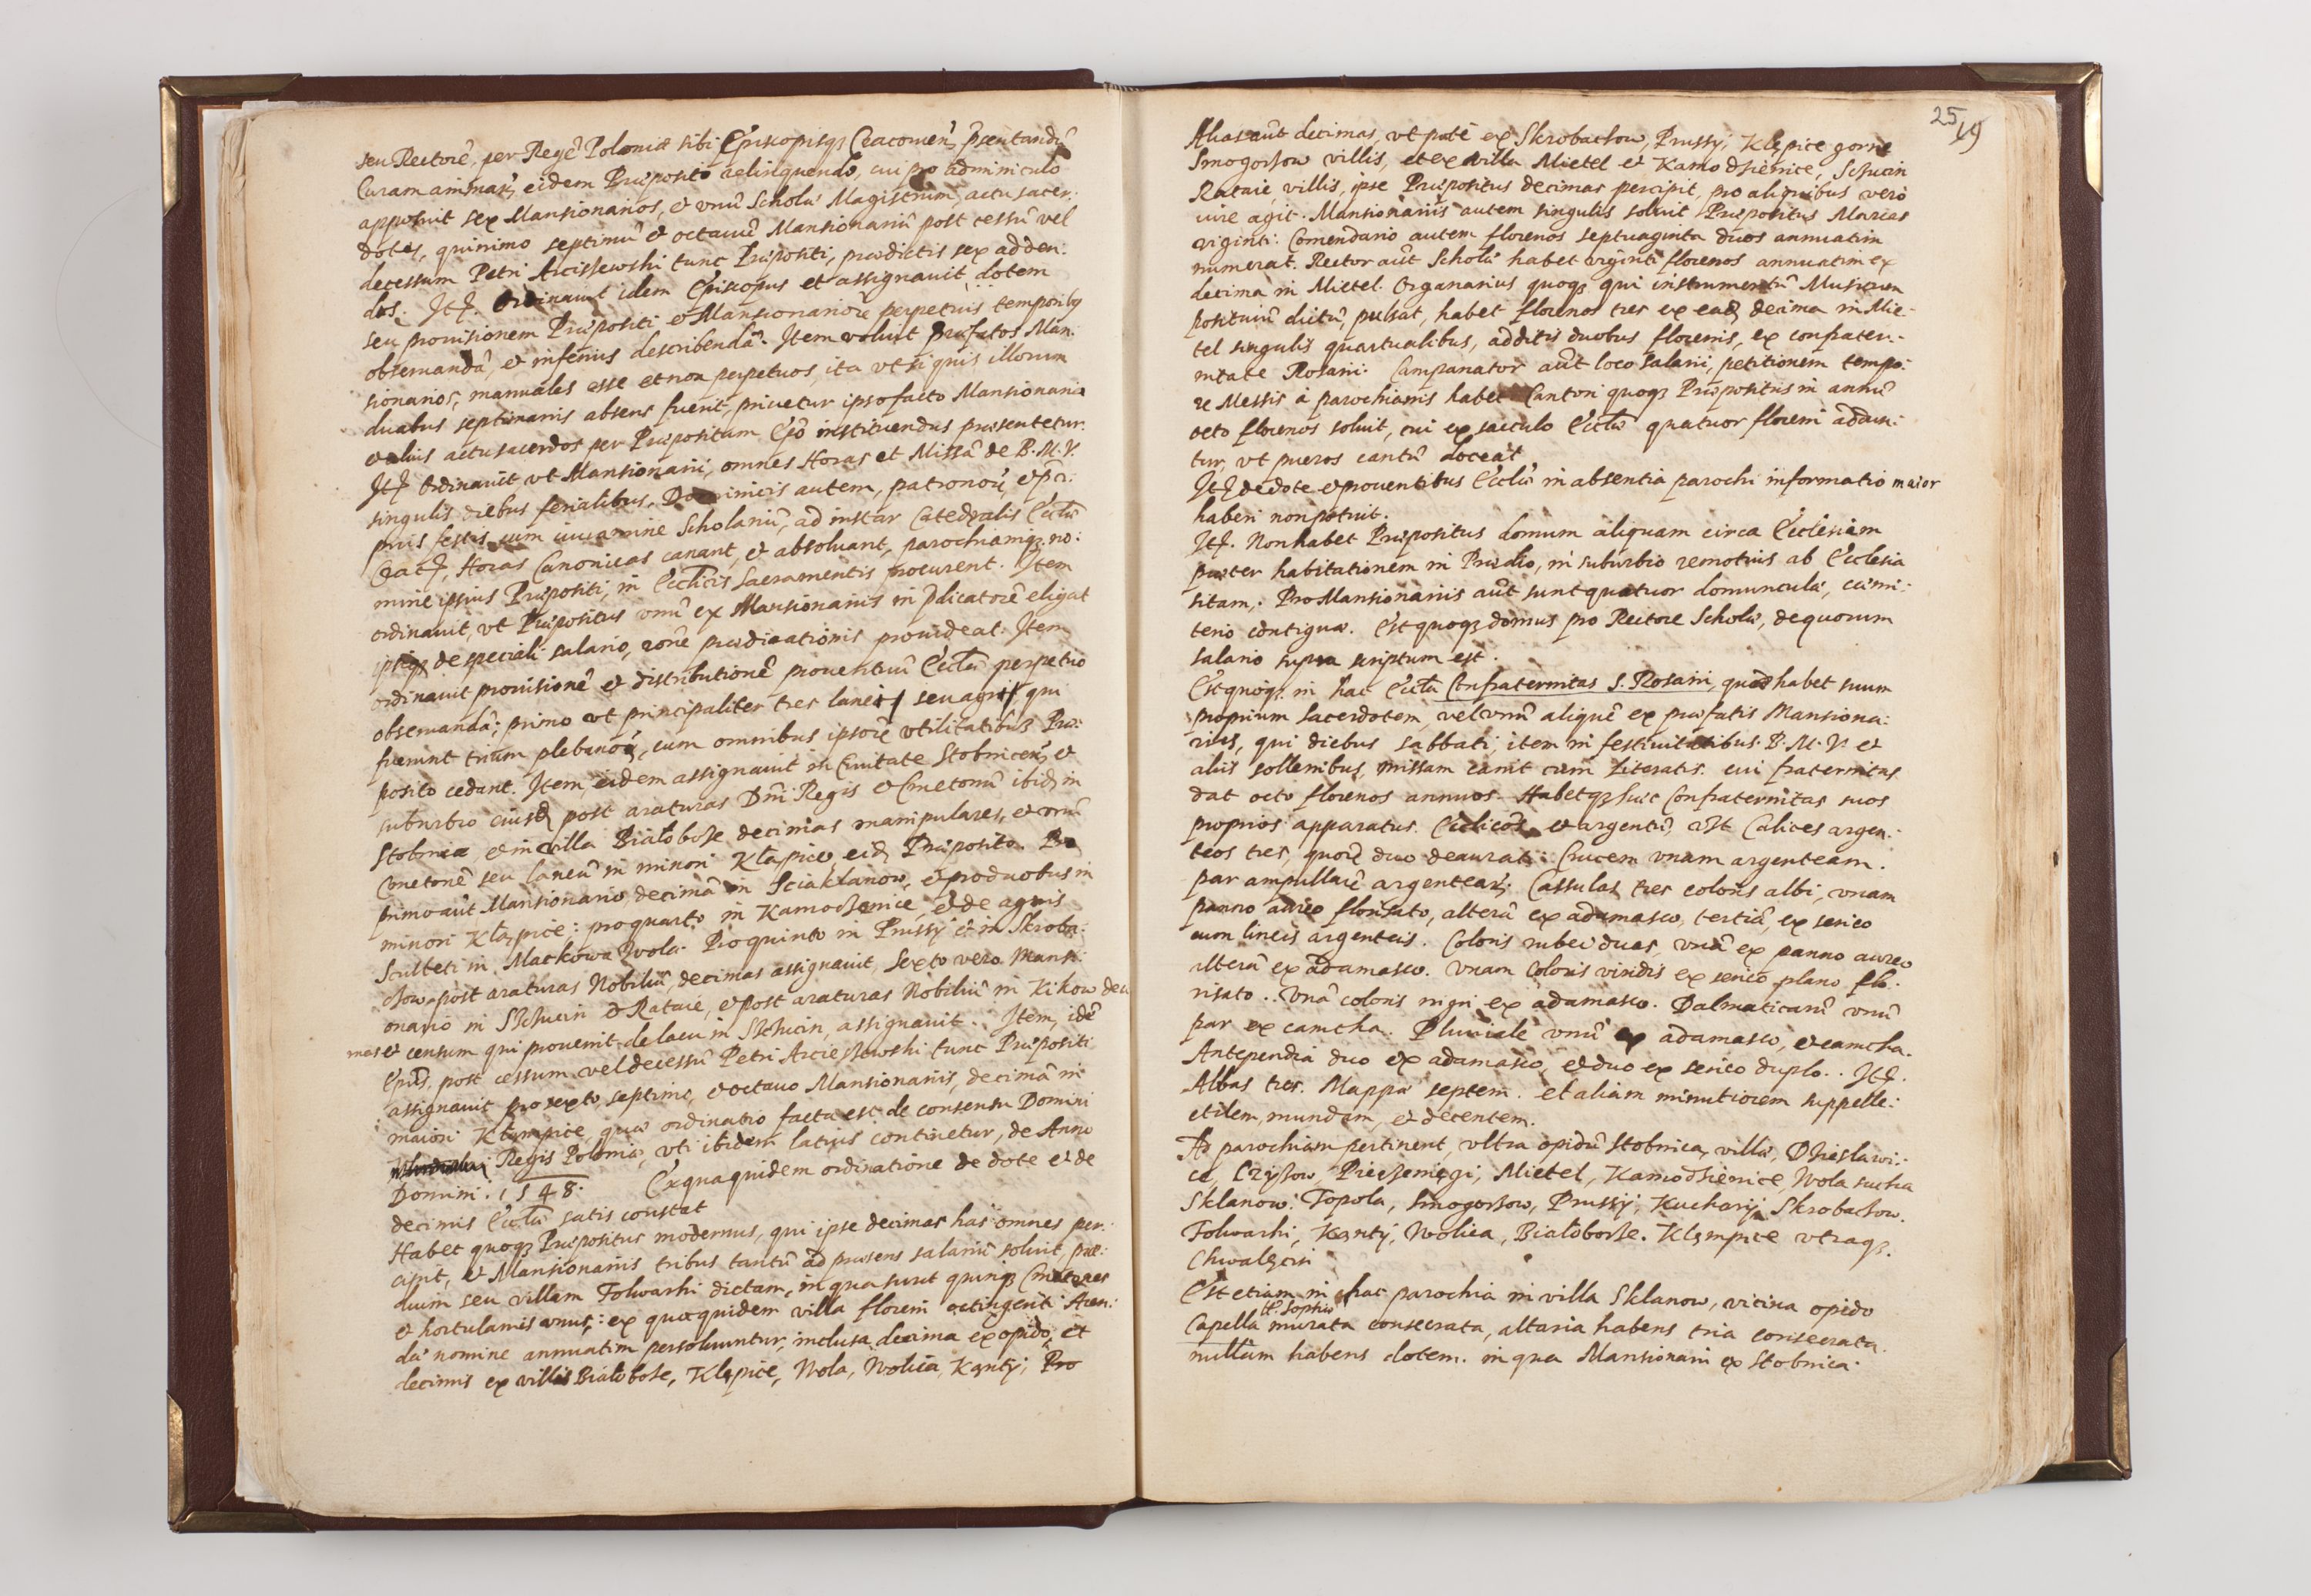 seu Rectorē, per Regē Poloniæ sibi Episcopisqz Cracovieñ, p̄sentandū
Curam animarū, eidem Præposito relinquendo, cui pro adminiculo
apposuit sex Mansionarios, et vnū Scholæ Magistrum, actu sacer:
dotes, quinimo septimū et octauū Mansionariū post cessū vel
decessum Petri Arcissewski tunc Præpositi, prædictis sex adden:
dos. Itē. Ordinauit idem Episcopus et assignauit dotem
seu prouisionem Præpositi et Mansionariorū perpetuis temporibg
obseruandā, et inferius describendā. Item voluit præfatos Man:
sionarios, manuales esse et non perpetuos, ita vt si quis illorum
duabus septimanis absens fuerit, priuetur ipso facto Mansionaria
et alius actu sacerdos per Præpositum Ep̄o instituendus præsentetur.
Itē Ordinauit vt Mansionarii, omnes Horas et Missā de B. M. V.
singulis diebus ferialibus. Dominicis autem, patronorū, et p̄ci:
puis festis cum iuuamine Scholariū, ad instar Catedralis Eccl̄æ
Crac̄, Horas Canonicas canant, et absoluant, parochiamqz no:
mine ipsius Præpositi, in Eccl̄icis Sacramentis procurent. Item
ordinauit, vt Præpositus vnū ex Mansionariis in p̄dicatorē eligat
ipsiqz de speciali salario, rōne prædicationis prouideat. Item
ordinauit prouisionē et distributionē prouentuū Eccl̄æ perpetuo
obseruandā; primo vt principaliter tres lanei seu agri, qui
fuerunt trium plebanorū, cum omnibus ipsorū vtilitatibus Præ:
posito cedant. Item, eidem assignauit in Ciuitate Stobniceñ, et
suburbio eiusd, post araturas Dn̄i Regis et Cmetonū ibid, in
Stobnica, et in villa Białoboże decimas manipulares, et vnū
Cmetonē seu laneū in minori Kłępice, eid, Præposito. Pro
primo aūt Mansionario decimā in Sciaklanow, et pro duobus in
minori Kłępice: pro quarto in Kamodzenice, et de agris
Sculteti in Mackowa Wola. Pro quinto in Prussy et in Skroba:
czow post araturas Nobiliū, decimas assignauit, sexto vero Mansi:
onario in Szczucin et Rataie, et post araturas Nobiliū in Kikow deci
mas et censum qui prouenit de lacu in Szczucin, assignauit. Item, idē
Ep̄us, post cessum vel decessū Petri Arciessewski tunc Præpositi
assignauit pro sexto, septimo, et octauo Mansionariis, decimā in
maiori Kłępice, quæ ordinatio facta est de consensu Domini
Regis Poloniæ, vti ibidem latius continetur, de Anno
Domini. 1548. Ex qua quidem ordinatione de dote et de
decimis Eccl̄æ satis constat
Habet quoqz Præpositus modernus, qui ipse decimas has omnes per:
cipit, et Mansionariis tribus tantū ad præsens salariū soluit, præ:
dium seu villam Folwarki dictam, in qua sunt quinqz Cmetones
et hortulanis vnus: ex qua quidem villa floreni octingenti Aren:
dæ nomine annuatim persoluuntur, inclusa decima ex opido, et
decimis ex villis Białoboże, Kłępice, Wola, Wolica, Kąnty; Pro
25
19
Alias aūt decimas, vt putē ex Skrobaczow, Prussy, Kłępice gorne
Smogorzow villis, et ex villa Mietel et Kamodzienice, Szczucin
Rataie, villis, ipse Præpositus decimas percipit, pro aliquibus vero
iure agit. Mansionariis autem singulis soluit Præpositus Marcas
viginti. Comendario autem florenos septuaginta duos annuatim
numerat. Rector aūt Scholæ habet viginti florenos annuatim ex
decima in Mietel. Organarius quoqz qui instrumentū Musicum
positiuū dictū, pulsat, habet florenos tres ex ead, decima in Mie-
tel singulis quartualibus, additis duobus florenis, ex confrater:
nitate Rosarii. Campanator aūt loco salarii, petitionem tempo:
re Messis à parochianis habet Cantori quoqz Præpositus in annū
octo florenos soluit, cui ex sacculo Eccl̄æ quatuor floreni addun:
tur, vt pueros cantū doceat
Itē de dote et prouentibus Eccl̄æ in absentia parochi informatio maior
haberi non potuit.
Itē. Non habet Præpositus domum aliquam circa Ecclesiam
præter habitationem in Prædio, in suburbio remotius ab Ecclesia
sitam. Pro Mansionariis aūt sunt quatuor domunculæ, cæmi:
terio contiguæ. Est quoqz domus pro Rectore Scholæ, de quorum
salario supra scriptum est.
Est quoqz in hac Eccl̄a Confraternitas S. Rosarii, quæ habet suum
proprium sacerdotem, vel vnū aliquē ex præfatis Mansiona:
riis, qui diebus sabbati, item in festiuitatibus B. M. V. et
aliis sollenibus, missam canit cum Literatis. cui fraternitas
dat octo florenos annuos. Habetqz hæc Confraternitas suos
proprios apparatus. Eccl̄icos, et argentū, vzt Calices argen:
teos tres, quorū duo deaurati. Crucem vnam argenteam.
par ampullarū argentearū. Cassulas tres coloris albi, vnam
panno aureo florisato, alterā ex adamasco, tertiā ex serico
cum lineis argenteis. Coloris rubei duas, vnā ex panno aureo
alterā ex adamasco. Vnam coloris viridis ex serico plano flo:
risato. Vnā coloris nigri ex adamasco. Dalmaticarū vnū
par ex camcha. Pluuiale vnū ex adamasco, et camcha.
Antependia duo ex adamasco, et duo ex serico duplo. Itē.
Albas tres. Mappæ septem. et aliam minutiorem suppelle:
ctilem, mundam, et decentem.
Ad parochiam pertinent, vltra opidū Stobnica, villæ, Dzieslawi:
ce, Czyżow, Pieczemięgi, Mietel, Kamodzienice, Wola sucha
Sklanow. Topola, Smogorzow, Prussy, Kuchary, Skrobaczow.
Folwarki, Kąnty, Wolica, Białoborze. Kłępice vtraqz.
Chwalęcin
Est etiam in hac parochia in villa Sklanow, vicina opido
tt. Sophiæ
Capella murata consecrata, altaria habens tria consecrata.
nullam habens dotem. in qua Mansionarii ex Stobnica.